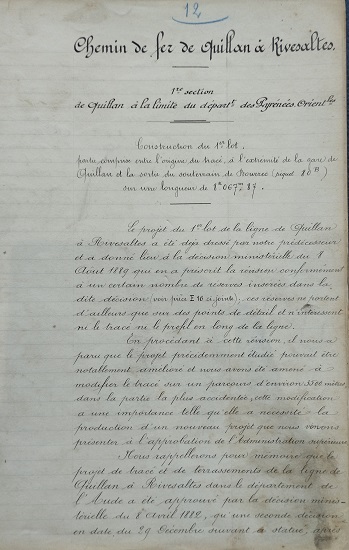 12
Chemin de fer de Quillan à Rivesaltes.
1re section
de Quillan à la limite du départt des Pyrénées Orientles
Construction du 1er lot,
partie comprise entre l'origine du tracé, à l'extrémité de la gare de
Quillan et la sortie du souterrain de (piquet 80 B)
sur une longueur de 8k 067m 87.
Le projet du 1er lot de la ligne de Quillan
à Rivesaltes a été déjà dressé par notre prédécesseur
et a donné lieu à la décision ministérielle du 8
Août 1889 qui en a prescrit la révision conformément
à un certain nombre de réserves insérées dans la
dite décision (voir pièce E 16 ci jointe); ces réserves ne portent
d'ailleurs que sur des points de détail et n'intéressent
ni le tracé ni le profil en long de la ligne.
En procédant à cette révision, il nous a
paru que le projet précédemment étudié pouvait être
notablement amélioré et nous avons été amenés à
modifier le tracé sur un parcours d'environ 3500 mètres,
dans la partie la plus accidentée; cette modification
a une importance telle qu'elle a nécessité la
production d'un nouveau projet que nous venons
présenter à l'approbation de l'Administration supérieure.
Nous rappellerons pour mémoire que le
projet de tracé et de terrassements de la ligne de
Quillan à Rivesaltes dans le département de
l'Aude a été approuvé par la décision minis-
térielle du 8 Avril 1882, qu'une seconde décision
en date du 29 Décembre suivant a statué, après